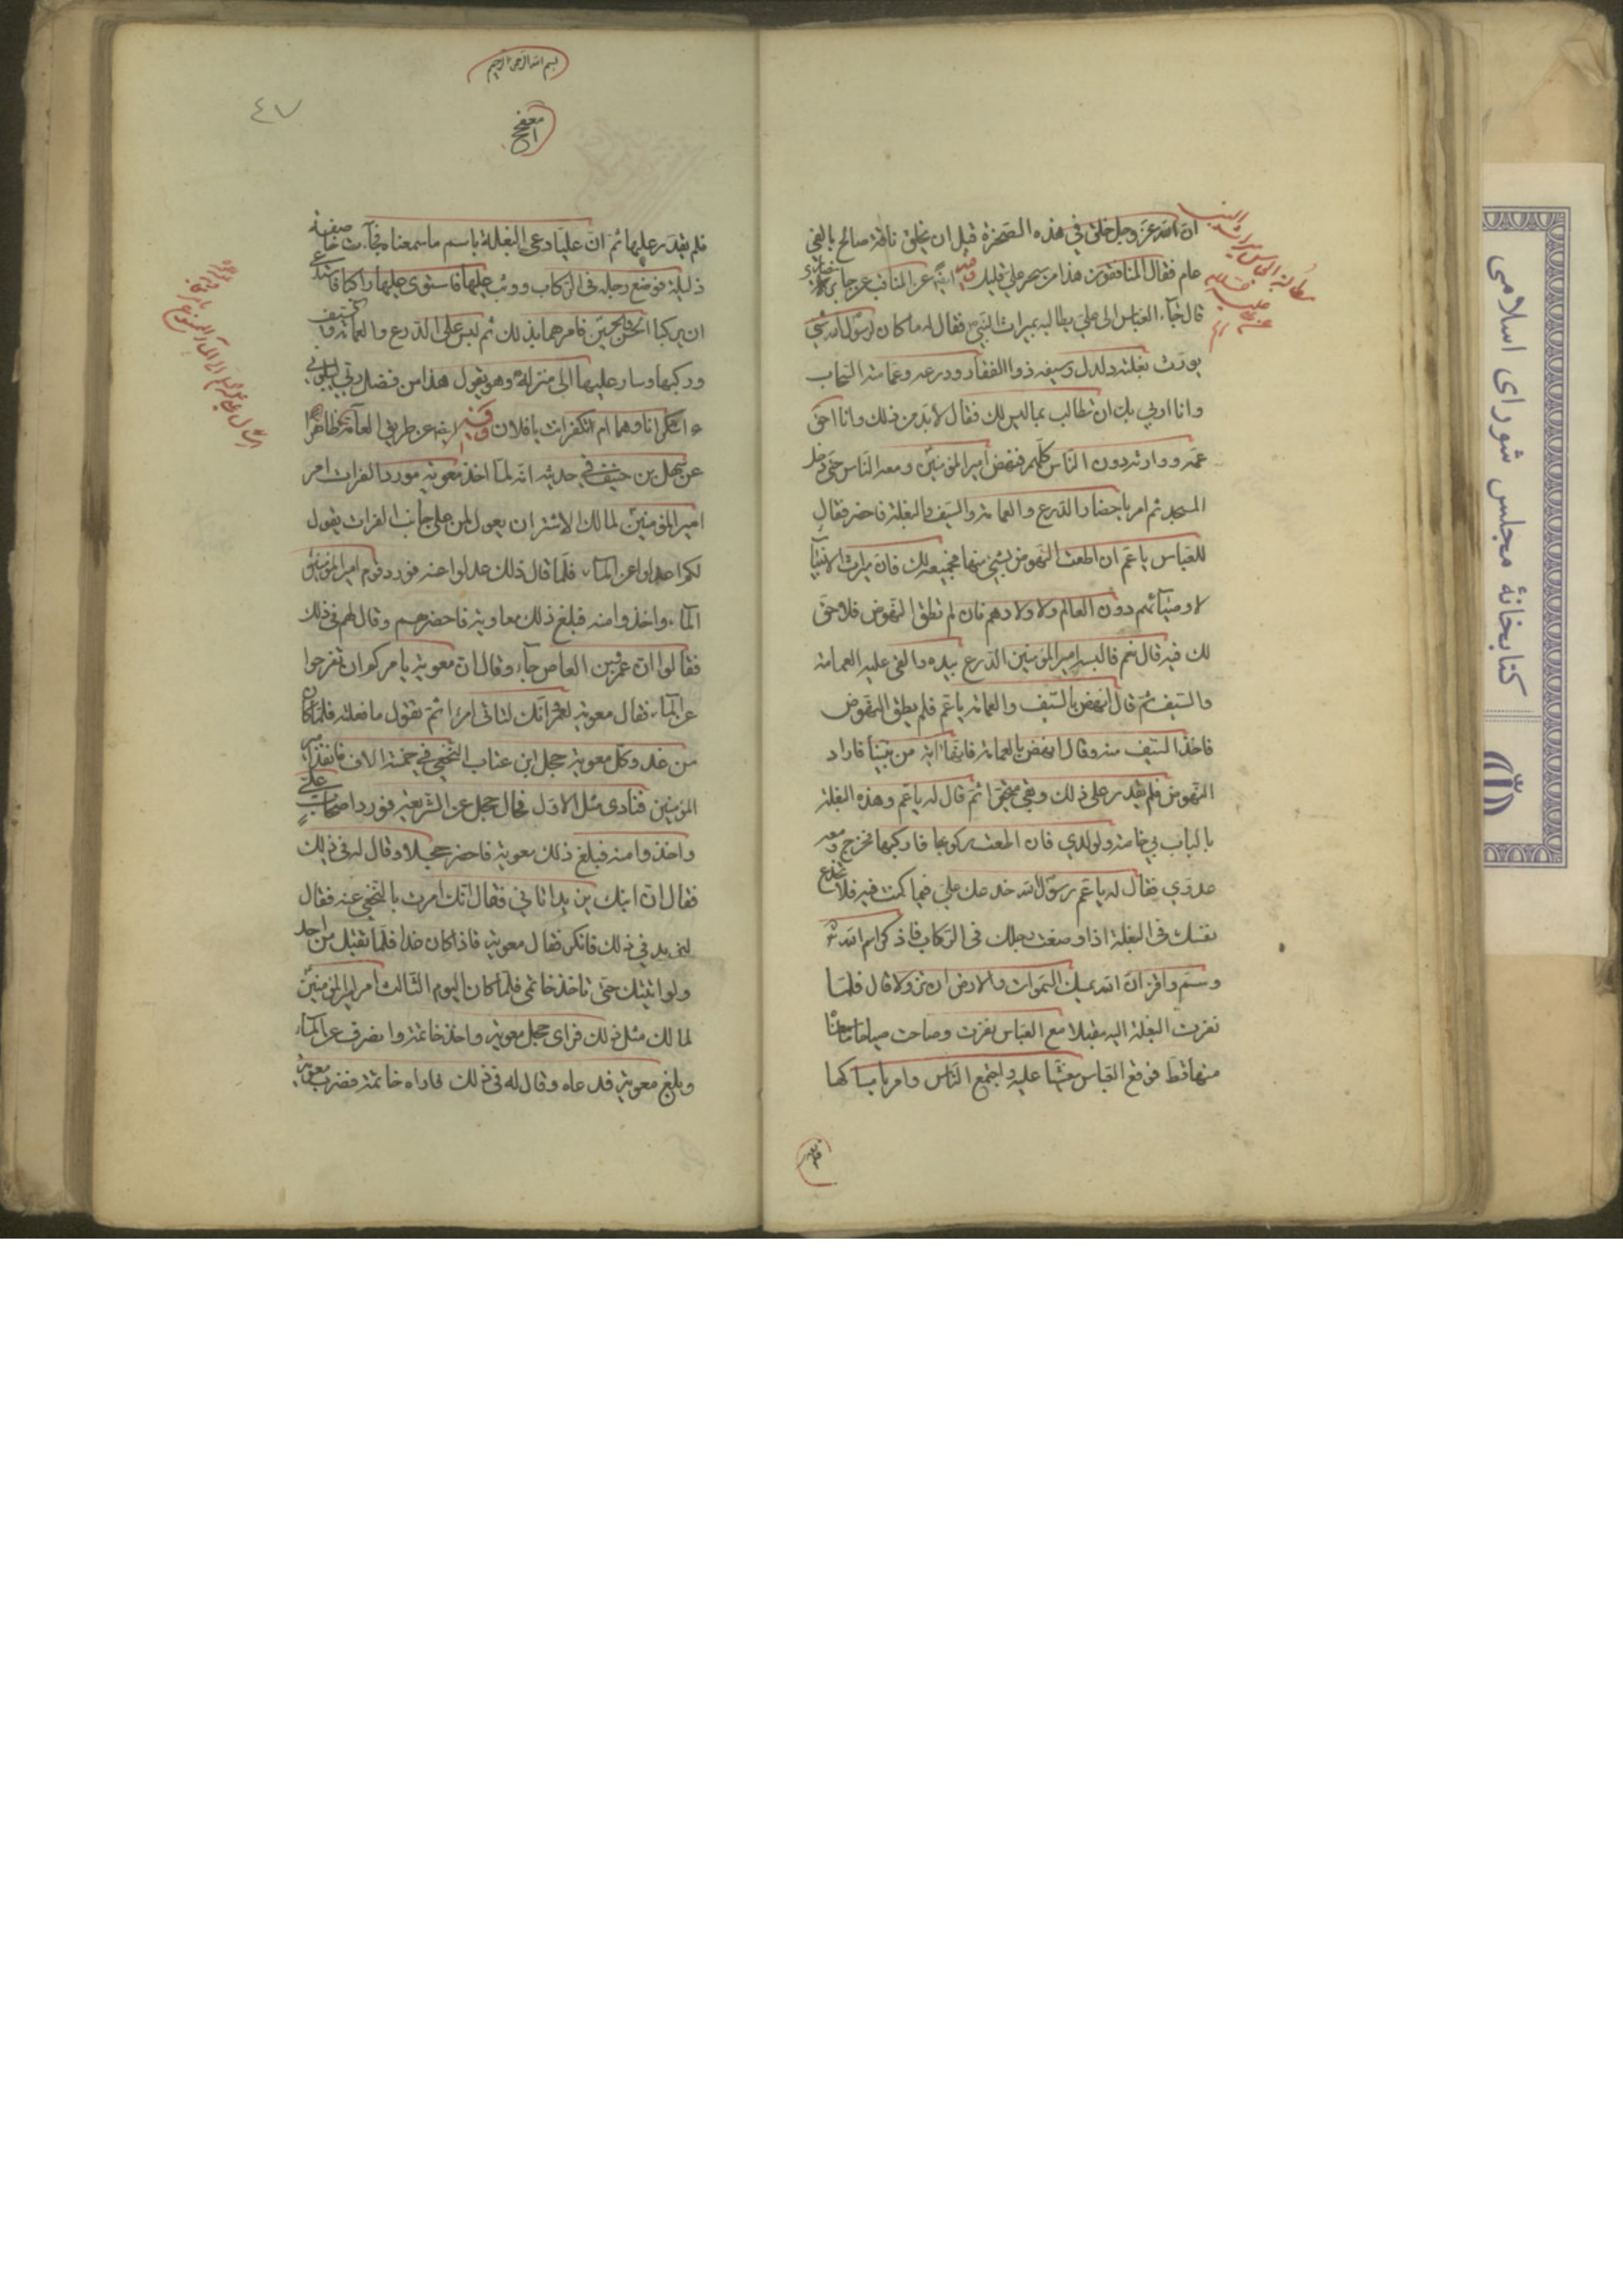 ان الله عز وجل خلق في هذه الصخرة قبل ان يخلق ناقة صالح بالفي
عام فقال المنافقون هذا من سحر علي قليل وفيه ايضا عن المناقب عن جابر
قال جاء العباس الى علي يطالبه بميراث النبي فقال له ما كان لرسول الله شي
يورث بغلته دلدل وسيفه ذو الفقار ودرعه وعمامته السحاب
وانا اربي بك ان تطالب بما ليس لك فقال لا بد من ذلك وانا احق
عمه ووارثه دون الناس كلهم فنهض امير المؤمنين ومعه الناس حتى دخل
المسجد ثم امر باحضار الدرع والعمامة والسيف والبغلة فاحضر فقال
للعباس يا عم ان اطقت النهوض بشئ منها فجميعه لك فان ميراث الانبياء
لاوصيائهم دون العالم ولاولادهم فان لم تطق النهوض فلا حق
لك فيه قال نعم فالبسه امير المؤمنين الدرع بيده والقى عليه العمامة
والسيف ثم قال انهض بالسيف والعمامة يا عم فلم يطق النهوض
فاخذ السيف منه وقال انهض بالعمامة فانها اية من نبينا فاراد
النهوض فلم يقدر على ذلك وبقي متحيرا ثم قال له يا عم وهذه البغلة
بالباب لي خاصة ولولدي فان اطقت ركوبها فاركبها فخرج ومعه
عدوي فقال له يا عم رسول الله خدعك علي فيما كنت فيه فلا تخدع
نفسك في البغلة اذا وضعت رجلك في الركاب فاذكر اسم الله
وسم واقرء ان الله يمسك السموات والارض ان تزولا قال فلما
نظرت البغلة اليه مقبلا مع العباس نفرت وصاحت صياحا ما سمعنا
منها قط فوقع العباس مغشيا عليه واجتمع الناس وامر بامساكها
فلم يقدر
بسم الله الرحمن الرحيم
٤٧
فلم يقدر عليها ثم ان عليا دعى البغلة باسم ما سمعناه فجاءت خاضعة
ذليلة فوضع رجله في الركاب ووثب عليها فاستوى عليها راكبا فاستدعى
ان يركبا الحسن والحسين فامرهما بذلك ثم لبس علي الدرع والعمامة والسيف
وركبها وسار عليها الى منزله وهو يقول هذا من فضل ربي ليبلوني
ءاشكر انا وهما ام اتكفر انت يا فلان وفيه ايضا عن طريق العامة
عن سهل بن حنيف في حديثه انه لما اخذ معوية مورد الفرات امر
امير المؤمنين لمالك الاشتر ان يقول لمن على جانب الفرات يقول
لكم اعدلوا عن الماء فلما قال ذلك عدلوا عنه فورد قوم امير المؤمنين
الماء واخذوا منه فبلغ ذلك معاوية فاحضرهم وقال لهم في ذلك
فقالوا ان عمرو بن العاص جاء وقال ان معوية يامركم ان تفرجوا
عن الماء فقال معوية لعمرو انك لتاتي امرا ثم تقول ما فعلته فلما كان
من غد وكل معوية حجل ابن عتاب النخعي في خمسة الاف فانفذ امير
المؤمنين فنادى مثل الاول فمال حجل عن الشريعة فورد اصحاب علي
واخذوا منه فبلغ ذلك معوية فاحضر حجلا وقال له في ذلك
فقال ان ابنك يزيد اتاني فقال انك امرت بالتنحي عنه فقال
ليزيد في ذلك فانكر فقال معوية فاذا كان غدا فلا تقبل من احد
ولو اتيتك حتى تاخذ خاتمي فلما كان اليوم الثالث امر امير المؤمنين
لمالك مثل ذلك فراى حجل معوية واخذ خاتمه وانصرف عن الماء
وبلغ معوية فدعاه وقال له في ذلك فاراه خاتمه فضرب معوية
كتابخانهٔ مجلس شورای اسلامی